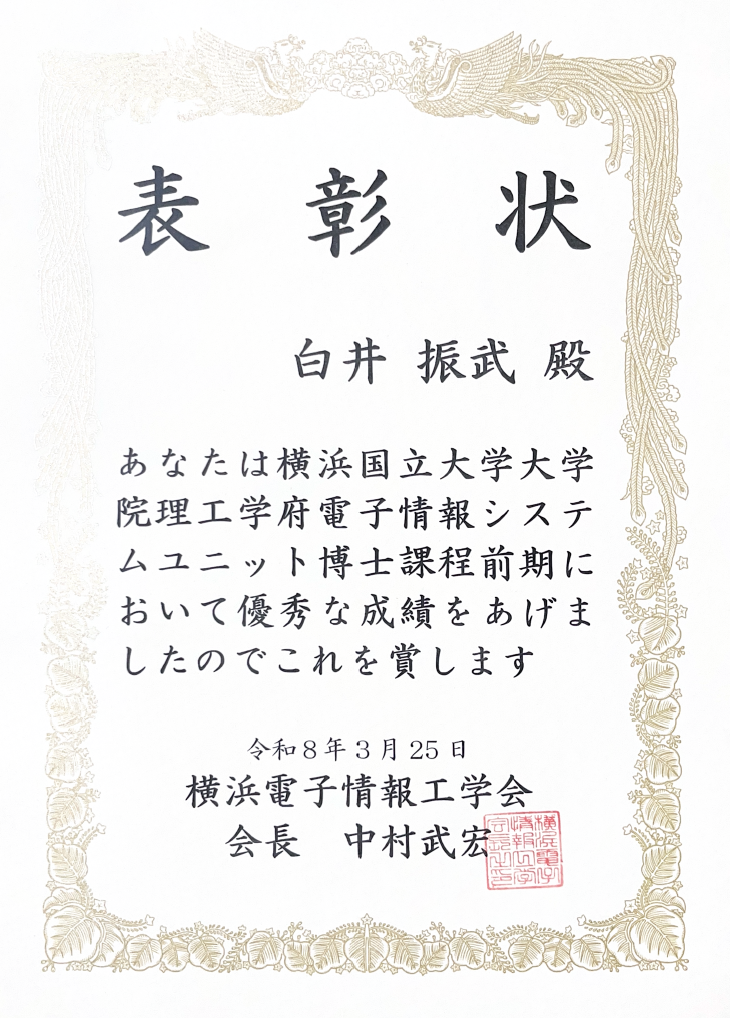 表彰状
白井 振武 殿
あなたは横浜国立大学大学
院理工学府電子情報システ
ムユニット博士課程前期に
おいて優秀な成績をあげま
したのでこれを賞します
令和8年3月25日
横浜電子情報工学会
会長 中村武宏
横浜電子
情報工学
会長之印